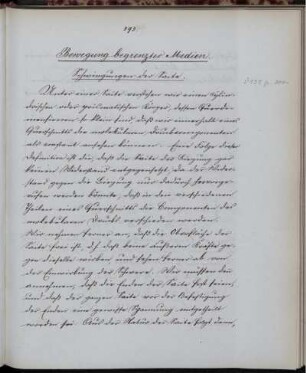 Bewegung begrenzter Medien.
Schwingungen der Saite.
Unter einer Saite verstehen wir einen cylin-
drischen oder prismatischen Körper, dessen Querdi-
mensionen so klein sind, daß wir innerhalb eines
Querschnitts die molekularen Druckcomponenten
als constant ansehen können. Eine Folge dieser
Definition ist die, daß die Saite der Biegung gar
keinen Widerstand entgegensetzt, da der Wider-
stand gegen die Biegung nur dadurch hervorge-
rufen werden könnte, daß in den verschiedenen
Theilen eines Querschnitts die Componenten des
molekularen Drucks verschieden werden.
Wir nehmen ferner an, daß die Oberfläche der
Saite frei ist, daß keine äußeren Kräfte ge-
gen dieselbe wirken und sehen ferner ab von
der Einwirkung der Schwere. Wir müssen dann
annehmen, daß die Enden der Saite fest seien,
und daß der ganzen Saite vor der Befestigung
der Enden eine gewisse Spannung mitgetheilt
worden sei. Aus der Natur der Saite folgt dann,